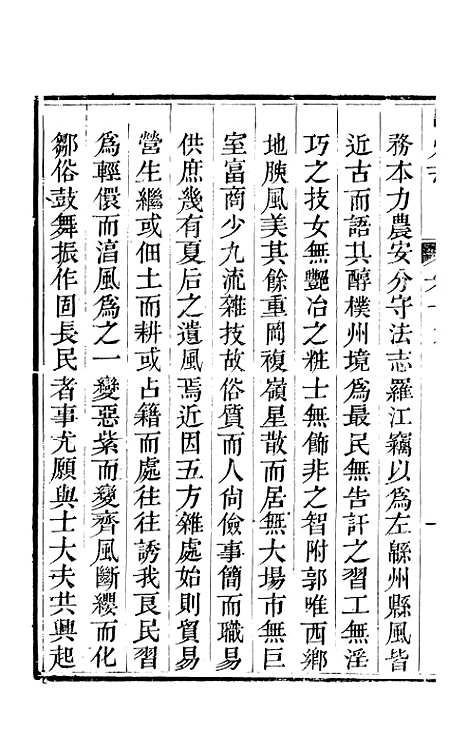 務本力農安分守法志羅江竊以為左緜州縣風皆
近古而語其醇樸州境為最民無告訐之習工無淫
巧之技女無艷冶之粧士無飾非之智附郭唯西鄉
地腴風美其餘重岡複嶺星散而居無大場市無巨
室富商少九流雜技故俗質而人尚儉事簡而職易
供庶幾有夏后之遺風焉近因五方雜處始則貿易
營生繼或佃土而耕或占籍而處往往誘我良民習
為輕儇而湻風為之一變惡紫而變齊風斷纓而化
鄒俗鼓舞振作固長民者事尤願與士大夫共興起